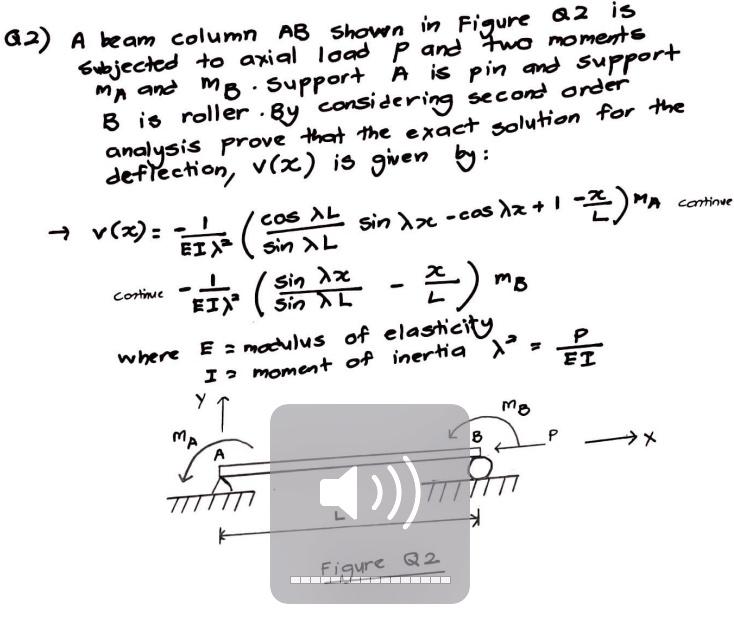 Q2) A beam column AB shown in Figure Q2 is
subjected to axial load P and two moments
MA and MB. Support A is pin and support
B is roller. By considering second order
analysis prove that the exact solution for the
deflection, v(x) is given by:
→ v(x) = -1/EIλ² (cos λL/sin λL sin λx - cos λx + 1 - x/L) MA continue
continue - 1/EIλ² (sin λx/sin λL - x/L) MB
where E = modulus of elasticity
I = moment of inertia λ² = P/EI
Y
MB
MA
A
B
P
X
L
Figure Q2